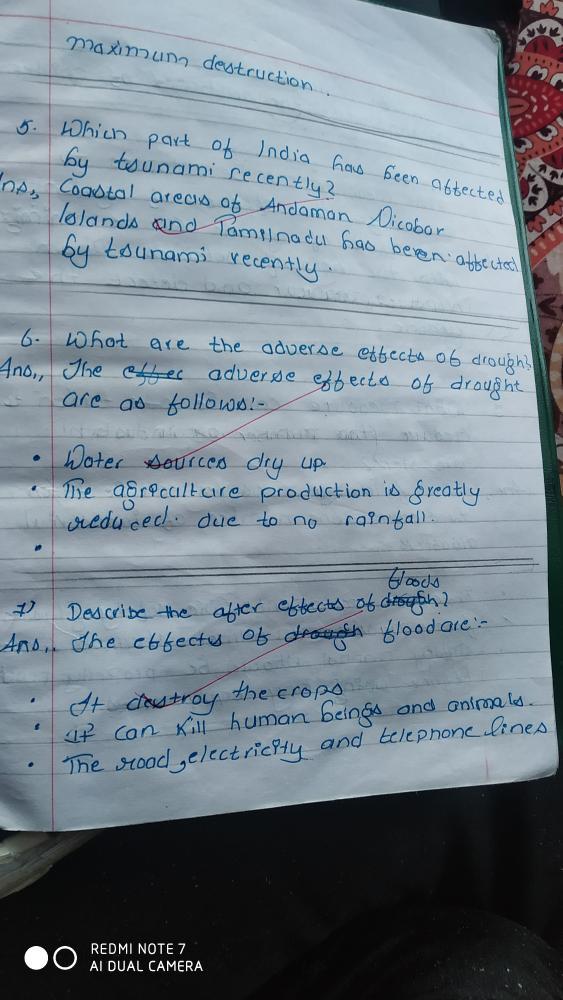 maximum destruction.
5. Which part of India has been affected
by tsunami recently?
Ans, Coastal areas of Andaman Nicobar
Islands and Tamilnadu has been affected
by tsunami recently.
6. What are the adverse effects of drough?
Ans,, The effec adverse effects of drought
are as follows:-
• Water sources dry up
• The agreculture production is greatly
reduced. due to no rainfall.
•
floods
7) Describe the after effects of drough?
Ans,, The effects of drough flood are:-
• It destroy the crops
• it can kill human beings and animals.
• The road, electricity and telephone lines
REDMI NOTE 7
AI DUAL CAMERA